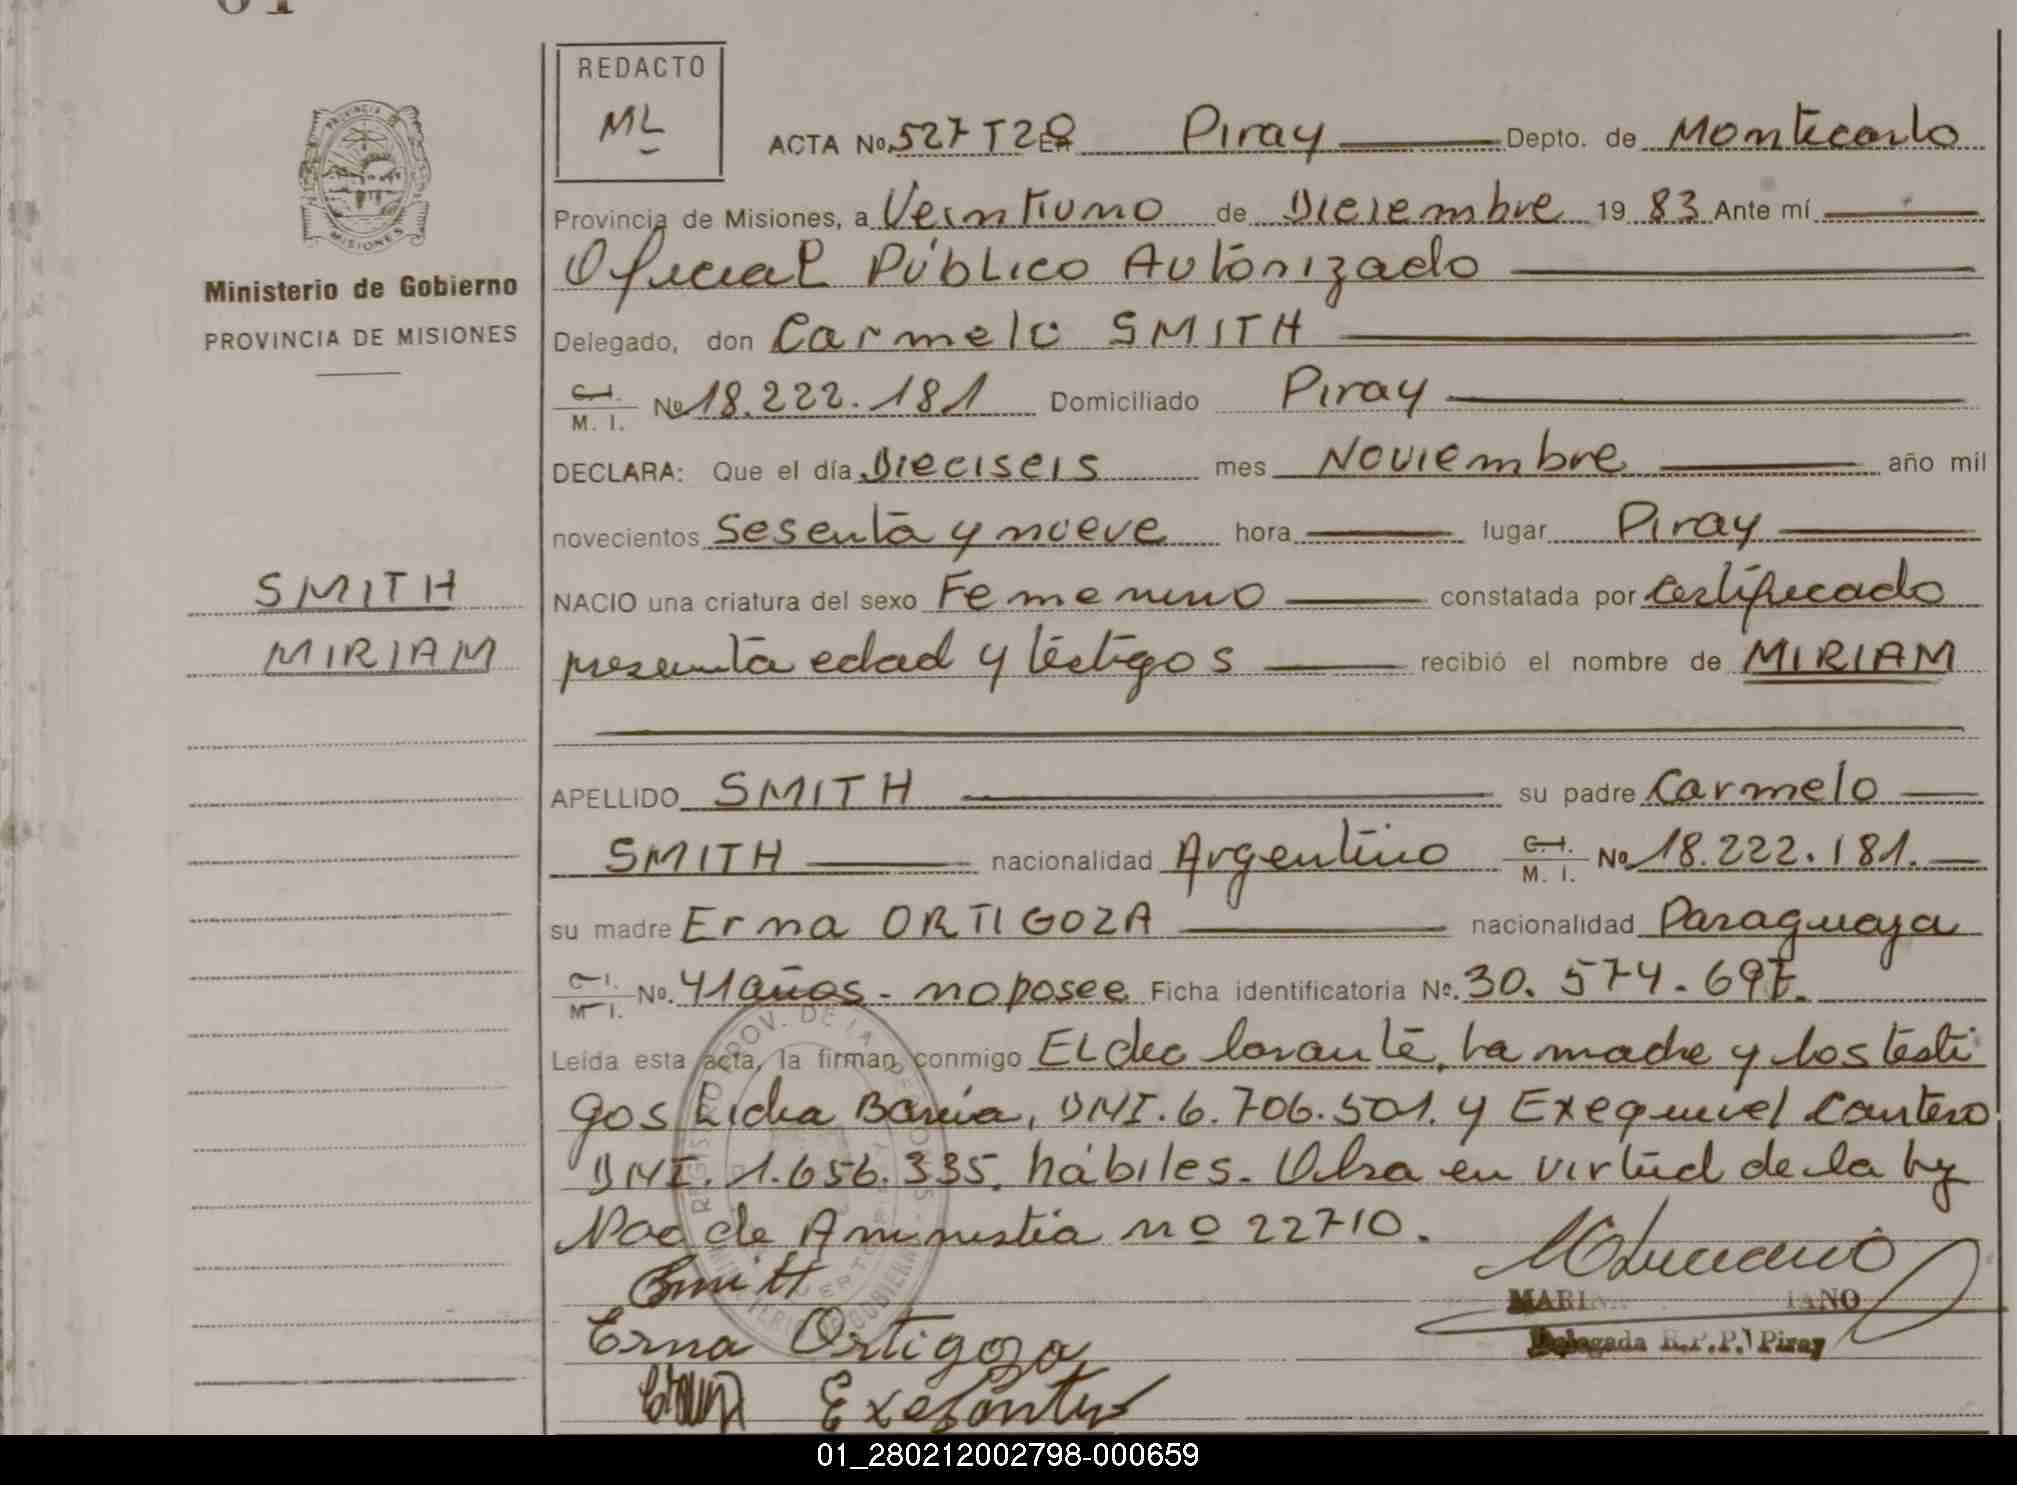 REDACTO
ML
ACTA No. 527 T2º Piray Depto. de Montecarlo
Provincia de Misiones, a Veintiuno de Diciembre 19 83 Ante mí
Oficial Público Autorizado
Ministerio de Gobierno
PROVINCIA DE MISIONES
Delegado, don Carmelo SMITH
C. I.
M. I. No 18.222.181 Domiciliado Piray
DECLARA: Que el día Dieciseis mes Noviembre año mil
novecientos Sesenta y nueve hora lugar Piray
SMITH
MIRIAM
NACIO una criatura del sexo Femenino constatada por certificado
presunta edad y testigos recibió el nombre de MIRIAM
APELLIDO SMITH su padre Carmelo
SMITH nacionalidad Argentino C. I. M. I. No 18.222.181.
su madre Erma ORTIGOZA nacionalidad Paraguaya
C. I.
M. I. No. 41 años - no posee Ficha identificatoria No. 30.574.697.
Leída esta acta, la firman conmigo El declarante, la madre y los testi
gos Lidia Bareia, DNI. 6.706.501. y Exequivel Cantero
DNI. 1.656.335. hábiles. Obra en virtud de la ley
Nac de Amnistia nº 22710.
Smith
Erna Ortigoza
MARI IANO
Delegada R.P.P. Piray
01_280212002798-000659